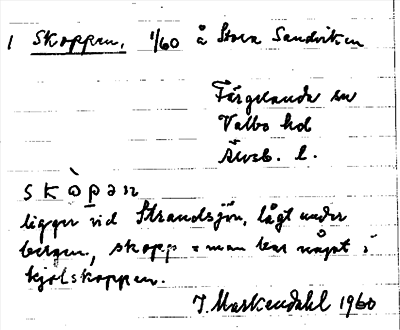 1 Skoppen, 1/60 å Stora Sandviken
Färgelanda sn
Valbo hd
Älvsb. l.
skɔ̀pən
ligger vid Strandsjön, lågt under
bergen, skopp = man bar något i
kjolskoppen.
J. Markendahl 1960